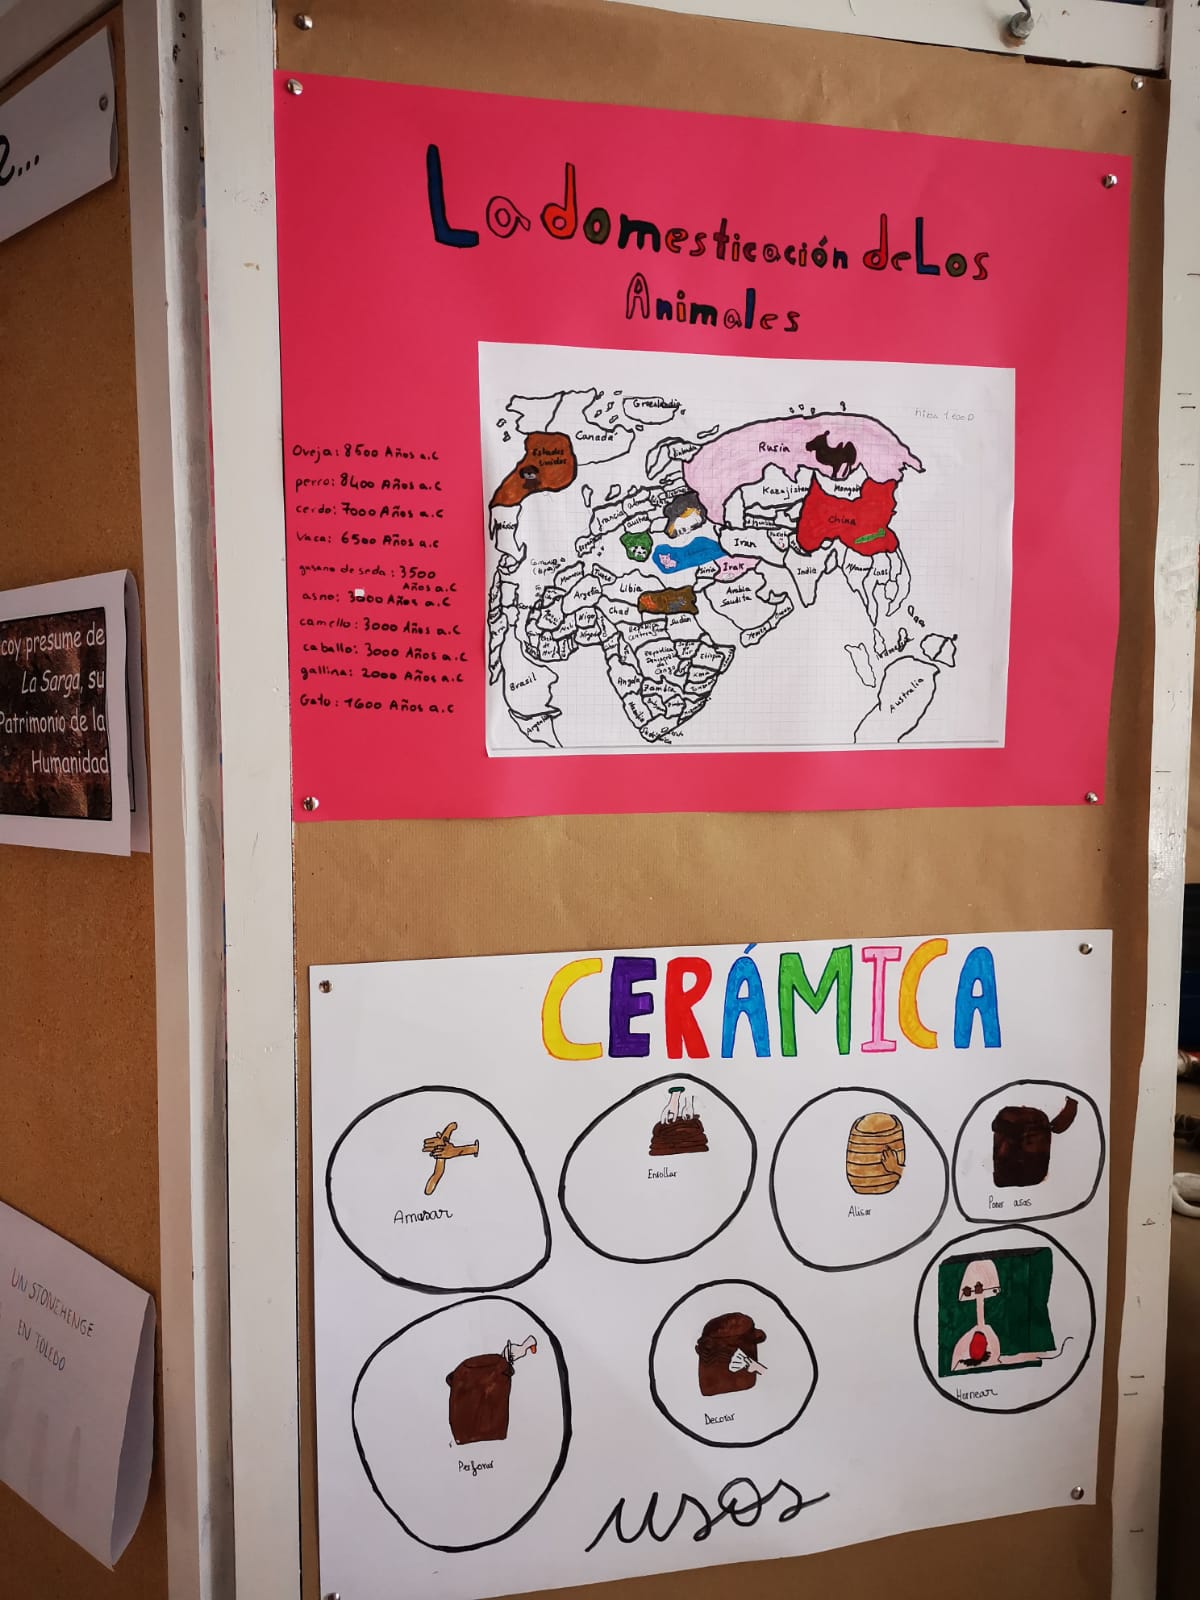 La domesticación de Los
Animales
Oveja: 8500 Años a.C
perro: 8400 Años a.C
cerdo: 7000 Años a.C
Vaca: 6500 Años a.C
gusano de seda: 3500
Años a.C
asno: 3000 Años a.C
camello: 3000 Años a.C
caballo: 3000 Años a.C
gallina: 2000 Años a.C
Gato: 1600 Años a.C
Canadá
Estados
Unidos
Rusia
Kazajistan
China
Iran
Irak
Siria
India
Libia
Argelia
Chad
Sudan
Arabia
Saudita
Yemen
Angola
Zambia
Brasil
Australia
coy presume de
La Sarga, su
Patrimonio de la
Humanidad
UN STONEHENGE
EN TOLEDO
CERÁMICA
Amasar
Enrollar
Alisar
Poner asas
Perforar
Decorar
Hornear
usos